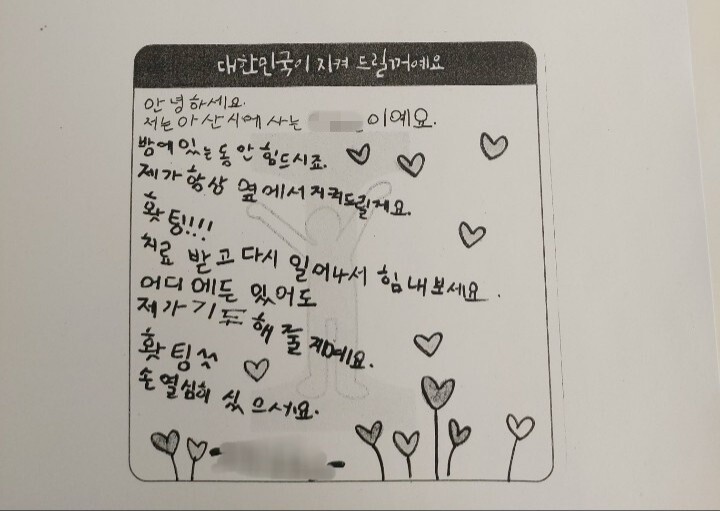 대한민국이 지켜 드릴꺼예요
안녕하세요.
저는 아산시에 사는 이예요.
방에 있는동안 힘드시죠.
제가 항상 옆에서 지켜드릴게요.
홧팅!!!
치료 받고 다시 일어나서 힘내보세요.
어디에든 있어도
제가 기도 해 줄꺼예요.
홧팅
손 열심히 씼으세요.